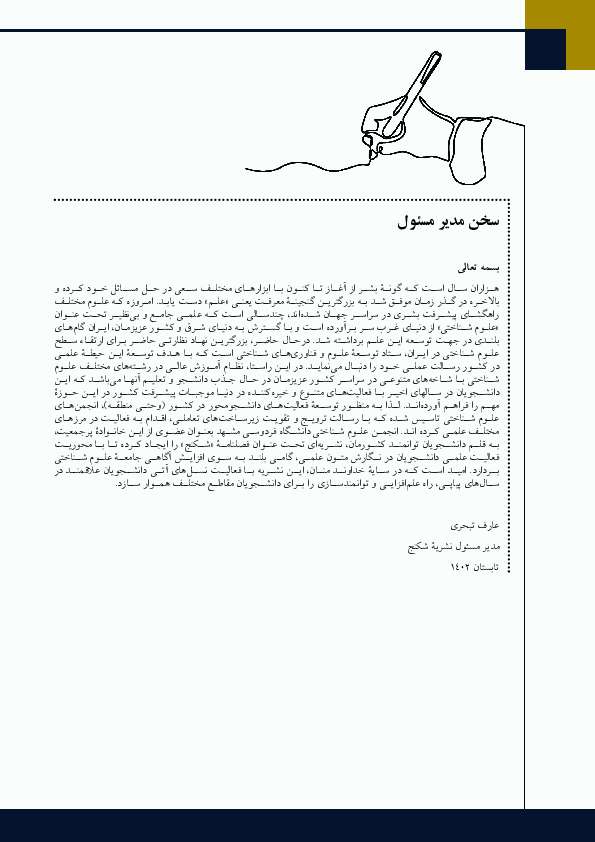 سخن مدیر مسئول
بسمه تعالی
هزاران سال است که گونهٔ بشر از آغاز تا کنون با ابزارهای مختلف سعی در حل مسائل خود کرده و
بالاخره در گذر زمان موفق شد به بزرگترین گنجینهٔ معرفت یعنی «علم» دست یابد. امروزه که علوم مختلف
راهگشای پیشرفت بشری در سراسر جهان شده‌اند، چندسالی است که علمی جامع و بی‌نظیر تحت عنوان
«علوم شناختی» از دنیای غرب سر برآورده است و با گسترش به دنیای شرق و کشور عزیزمان، ایران گام‌های
بلندی در جهت توسعه این علم برداشته شد. درحال حاضر، بزرگترین نهاد نظارتی حاضر برای ارتقاء سطح
علوم شناختی در ایران، ستاد توسعهٔ علوم و فناوری‌های شناختی است که با هدف توسعهٔ این حیطهٔ علمی
در کشور رسالت عملی خود را دنبال می‌نماید. در این راستا، نظام آموزش عالی در رشته‌های مختلف علوم
شناختی با شاخه‌های متنوعی در سراسر کشور عزیزمان در حال جذب دانشجو و تعلیم آنها می‌باشد که این
دانشجویان در سالهای اخیر با فعالیت‌های متنوع و خیره‌کننده در دنیا موجبات پیشرفت کشور در این حوزهٔ
مهم را فراهم آورده‌اند. لذا به منظور توسعهٔ فعالیت‌های دانشجومحور در کشور (وحتی منطقه)، انجمن‌های
علوم شناختی تاسیس شده که با رسالت ترویج و تقویت زیرساخت‌های تعاملی، اقدام به فعالیت در مرزهای
مختلف علمی کرده اند. انجمن علوم شناختی دانشگاه فردوسی مشهد بعنوان عضوی از این خانوادهٔ پرجمعیت،
به قلم دانشجویان توانمند کشورمان، نشریه‌ای تحت عنوان فصلنامهٔ «شکنج» را ایجاد کرده تا با محوریت
فعالیت علمی دانشجویان در نگارش متون علمی، گامی بلند به سوی افزایش آگاهی جامعهٔ علوم شناختی
بردارد. امید است که در سایهٔ خداوند منان، این نشریه با فعالیت نسل‌های آتی دانشجویان علاقمند در
سال‌های پیاپی، راه علم‌افزایی و توانمندسازی را برای دانشجویان مقاطع مختلف هموار سازد.
عارف تبحری
مدیر مسئول نشریهٔ شکنج
تابستان ۱۴۰۲